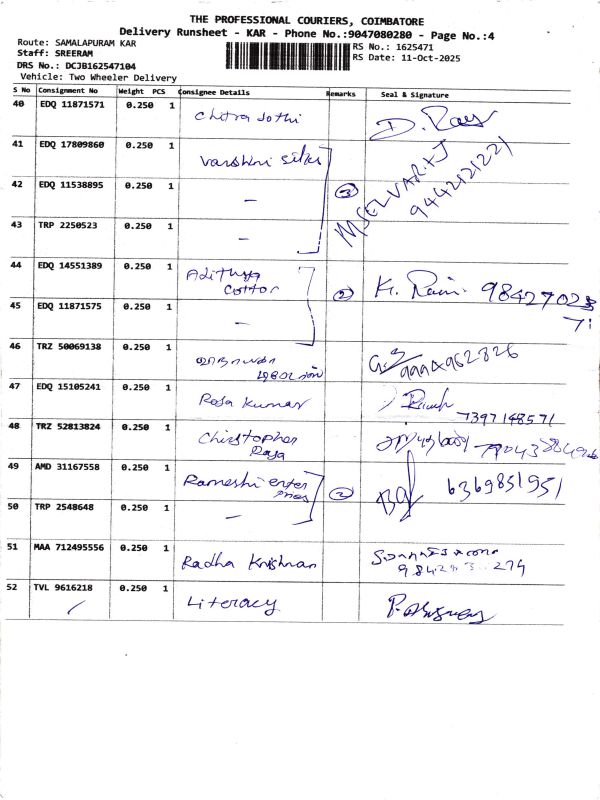 THE PROFESSIONAL COURIERS, COIMBATORE
Delivery Runsheet - KAR - Phone No.:9047080280 - Page No.:4
Route: SAMALAPURAM KAR
Staff: SREERAM
DRS No.: DCJB162547104
Vehicle: Two Wheeler Delivery
RS No.: 1625471
RS Date: 11-Oct-2025
S No Consignment No Weight PCS Consignee Details Remarks Seal & Signature
40 EDQ 11871571 0.250 1 Chitra Jothi
41 EDQ 17809860 0.250 1 Varshini silks
42 EDQ 11538895 0.250 1 - 3 MSELVARAJ
9442121221
43 TRP 2250523 0.250 1 -
44 EDQ 14551389 0.250 1 Adithya
Cotton 2 K.
45 EDQ 11871575 0.250 1 -
46 TRZ 50069138 0.250 1
47 EDQ 15105241 0.250 1 Raja Kumar 7397148571
48 TRZ 52813824 0.250 1 Christopher
Raja
49 AMD 31167558 0.250 1 2 6369851951
50 TRP 2548648 0.250 1 -
51 MAA 712495556 0.250 1 Radha Krishnan
52 TVL 9616218 0.250 1 Literacy